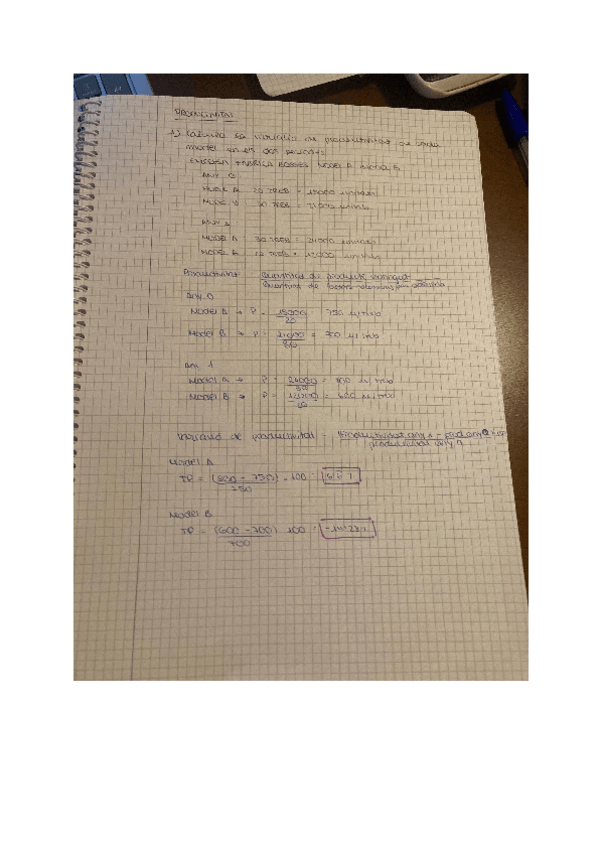 PRODUCTIVITAT
1) Calcula la variació de productivitat de cada
model en els dos
EMPRESA FABRICA MODEL A
ANY 0
MODEL A 20 TREB = 15000 unitats
MODEL B 30 TREB = 21000 unitats
ANY 1
MODEL A 30 TREB = 24000 unitats
MODEL B 20 TREB = 12000 unitats
Productivitat Quantitat de producte obtingut
Quantitat de factors
Any 0
Model A → P = 15000 / 20 = 750 u/treb
Model B → P = 21000 / 30 = 700 u/treb
Any 1
Model A → P = 24000 / 30 = 800 u/treb
Model B → P = 12000 / 20 = 600 u/treb
Variació de productivitat = Productivitat any 1 - prod any 0
productivitat any 0
Model A
TP = (800 - 750) / 750 . 100
Model B
TP = (600 - 700) / 700 . 100